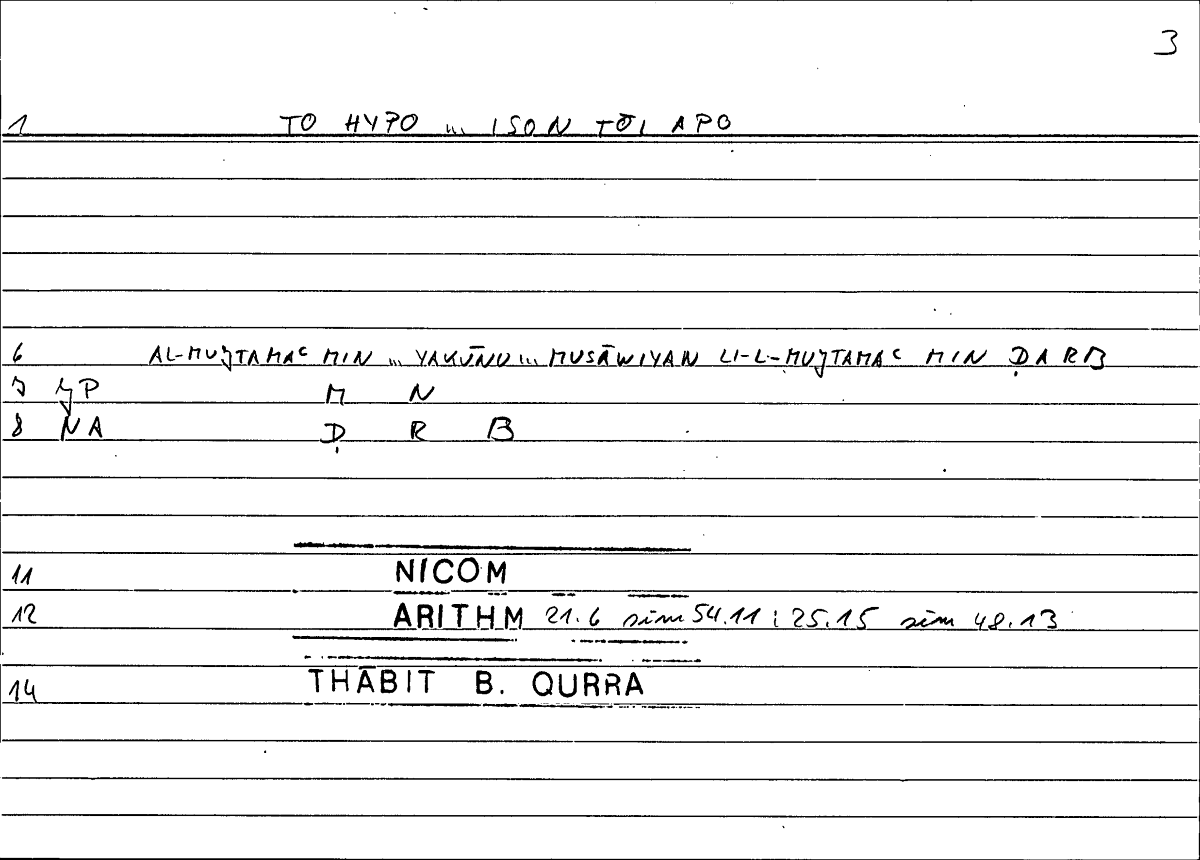 3
1 TO HYPO ... ISON TŌI APO
6 AL-MUJTAMAʿ MIN ... YAKŪNU ... MUSĀWIYAN LI-L-MUJTAMAʿ MIN ḌARB
7 P M N
8 NA Ḍ R B
11 NICOM
12 ARITHM 21.6 sim 54.11 ; 25.15 sim 48.13
14 THĀBIT B. QURRA